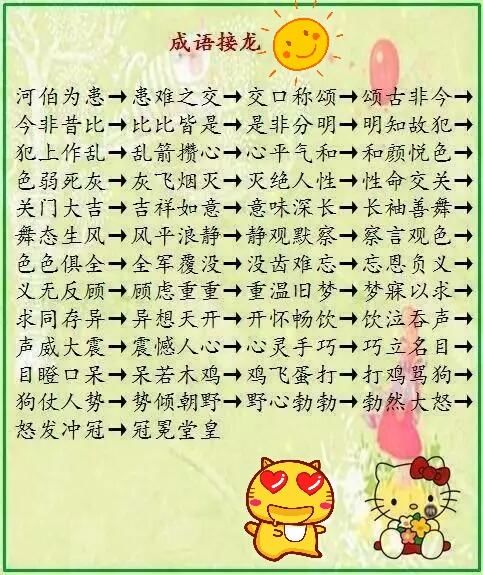 成语接龙
河伯为患→患难之交→交口称颂→颂古非今→
今非昔比→比比皆是→是非分明→明知故犯→
犯上作乱→乱箭攒心→心平气和→和颜悦色→
色弱死灰→灰飞烟灭→灭绝人性→性命交关→
关门大吉→吉祥如意→意味深长→长袖善舞→
舞态生风→风平浪静→静观默察→察言观色→
色色俱全→全军覆没→没齿难忘→忘恩负义→
义无反顾→顾虑重重→重温旧梦→梦寐以求→
求同存异→异想天开→开怀畅饮→饮泣吞声→
声威大震→震憾人心→心灵手巧→巧立名目→
目瞪口呆→呆若木鸡→鸡飞蛋打→打鸡骂狗→
狗仗人势→势倾朝野→野心勃勃→勃然大怒→
怒发冲冠→冠冕堂皇